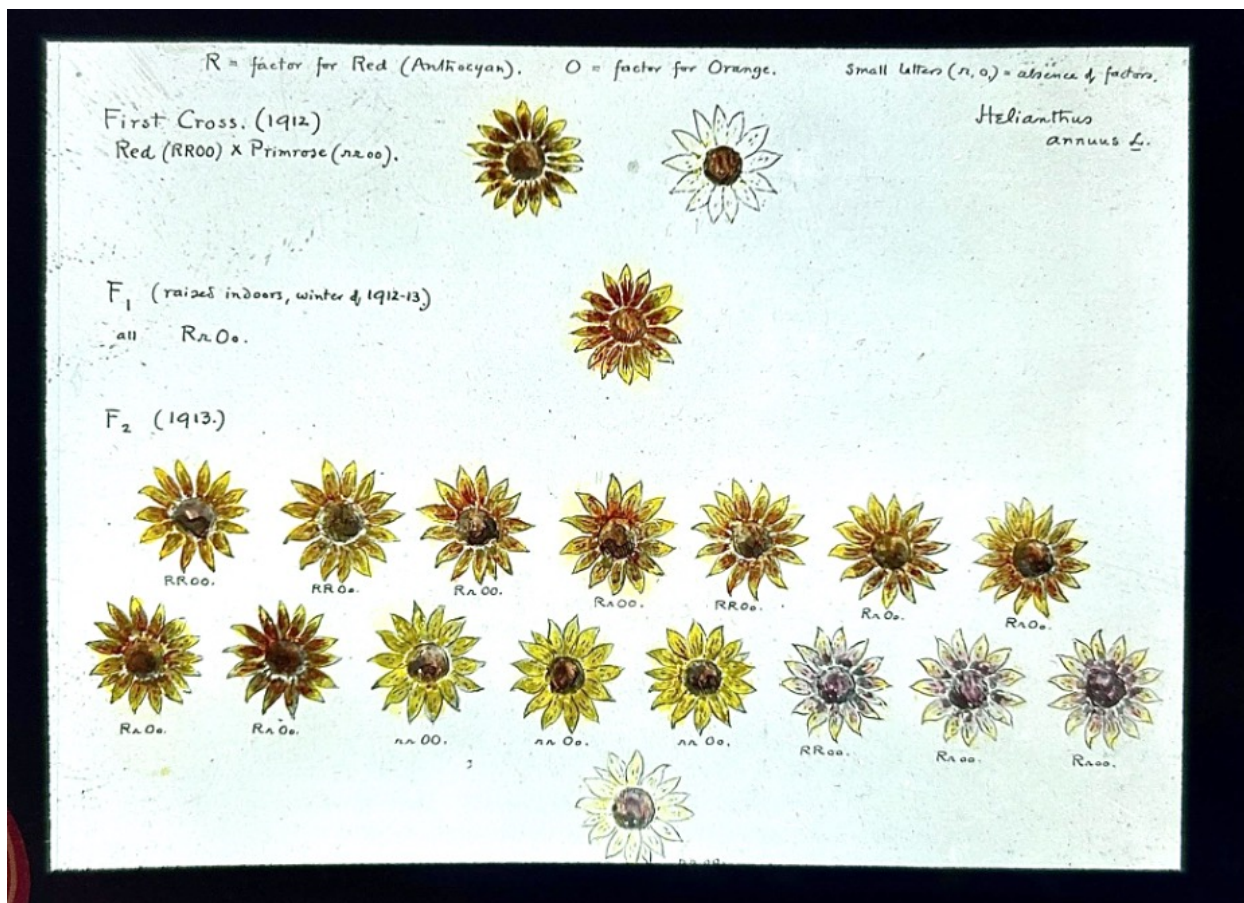 R = factor for Red (Anthocyan). O = factor for Orange. Small letters (r, o,) = absence of factors.
First Cross. (1912)
Red (RROO) x Primrose (rroo).
Helianthus
annuus L.
F1 (raised indoors, winter of 1912-13)
all RrOo.
F2 (1913.)
RROO. RROo. RrOO. RrOO. RROo. RrOo. RrOo.
RrOo. RrOo. rrOO. rrOo. rrOo. RRoo. Rroo. Rroo.
rroo.